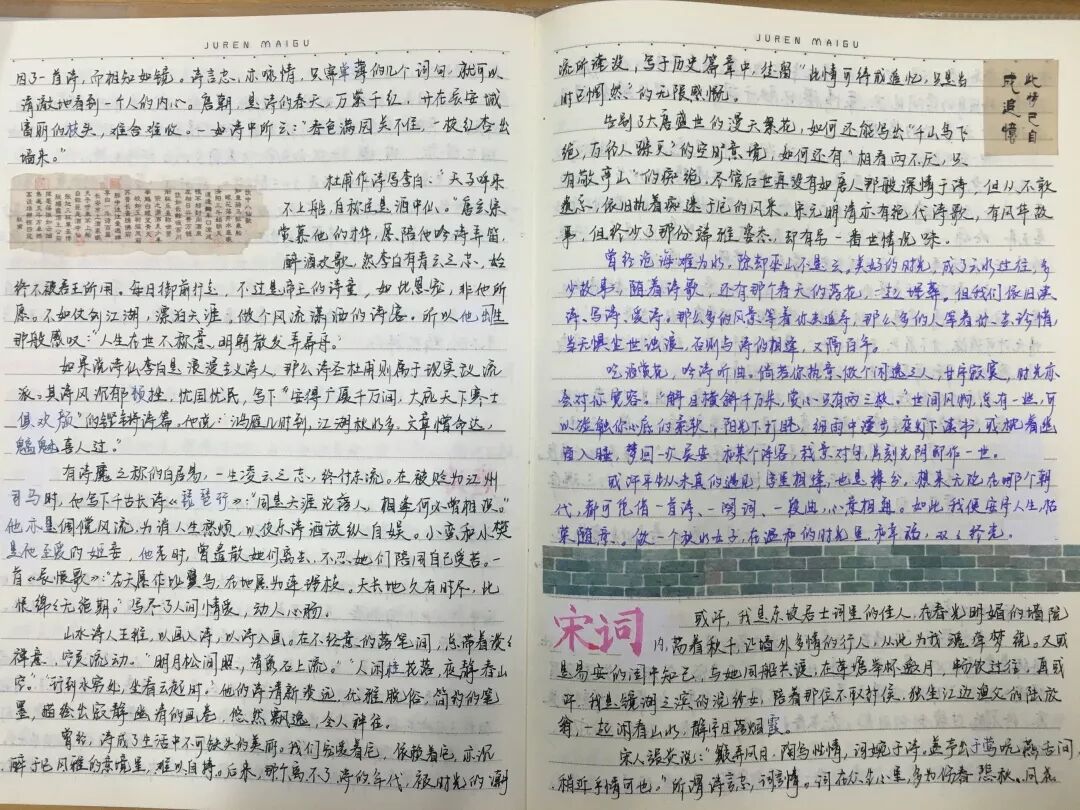 JUREN MAIGU
因了一首诗，而相知如镜。诗言志，亦咏情，只需单薄的几个词句，就可以
清澈地看到一个人的内心。唐朝，是诗的春天，万紫千红，开在长安城
富丽的枝头，难舍难收。一如诗中所云："春色满园关不住，一枝红杏出
墙来。"
杜甫作诗写李白："天子呼来
不上船，自称臣是酒中仙。"唐玄宗
赏慕他的才华，愿陪他吟诗弄笛，
醉酒欢歌，然李白有青云之志，始
终不被君王所用。每日御前行走，不过是帝王的诗童，如此恩宠，非他所
愿。不如仗剑江湖，漂泊天涯，做个风流潇洒的诗客。所以他出生
那般感叹："人生在世不称意，明朝散发弄扁舟。"
如果说诗仙李白是浪漫主义诗人，那么诗圣杜甫则属于现实效流
派。其诗风沉郁顿挫，忧国忧民，写下"安得广厦千万间，大庇天下寒士
俱欢颜"的铿锵诗篇。他说："鸿雁几时到，江湖秋水多。文章憎命达，
魑魅喜人过。"
有诗魔之称的白居易，一生凌云之志，终付东流。在被贬为江州
司马时，他写下千古长诗《琵琶行》："同是天涯沦落人，相逢何必曾相识。"
他亦是倜傥风流，为消人生愁烦，以伎乐诗酒放纵自娱。小蛮和小樊
是他至爱的姬妾，他老时，曾遣散她们离去，不忍她们陪同自己受苦。一
首《长恨歌》："在天愿作比翼鸟，在地愿为连理枝。天长地久有时尽，此
恨绵绵无绝期。"写尽了人间情爱，动人心肠。
山水诗人王维，以画入诗，以诗入画。在不经意的落笔间，总带着淡淡
禅意，空灵流动。"明月松间照，清泉石上流。""人闲桂花落，夜静春山
空。""行到水穷处，坐看云起时。"他的诗清新淡远，优雅脱俗，简约的笔
墨，描绘出寂静幽有的画卷，悠然飘逸，令人神往。
曾经，诗成了生活中不可缺失的美丽。我们宠爱着它，依赖着它，亦沉
醉于它风雅的意境里，难以自持。后来，那个离不了诗的年代，被时光的潮
JUREN MAIGU
流所淹没，写于历史篇章中，徒留"此情可待成追忆，只是当
时已惘然"的无限感慨。
此情已自
成追忆
告别了大唐盛世的漫天繁花，如何还能写出"千山鸟飞
绝，万径人踪灭"的空旷意境，如何还有"相看两不厌，只
有敬亭山"的痴绝。尽管后世再没有如唐人那般深情于诗，但从不敢
遗忘，依旧执着痴迷于它的风采。宋元明清亦有绝代诗歌，有风华故
事，但终少了那份锦雅姿态，却有另一番世情况味。
曾经沧海难为水，除却巫山不是云。美好的时光，成了云水过往，多
少故事，随着诗歌，还有那个春天的落花，一起埋葬。但我们依旧读
诗、写诗、爱诗。那么多的风景等着你去追寻，那么多的人等着你去珍惜，
当无惧尘世浊浪，否则与诗的相逢，又隔百年。
吃酒赏花，吟诗听曲。倘若你执意做个闲逸之人，甘守寂寞，时光亦
会对你宽容。"解且横斜千万朵，赏心只有两三枝。"世间风物，总有一些，可
以碰触你心底的柔软。阳光下打盹，细雨中漫步，夜灯下读书，或枕着幽
窗入睡，梦回一次长安，在某个诗客，执意对白，片刻光阴即作一世。
或许平生从未真的遇见，字里相逢，也是缘分，想来无论在哪个朝
代，都可凭借一首诗、一阕词、一段曲，心意相通。如此我便安守人生，恬
荣随意。做一个秋水女子，在温和的时光里，幸福，寂寂终老。
宋词
或许，我是东坡居士词里的佳人，在春光明媚的墙院
内，荡着秋千，让墙外多情的行人，从此为我魂牵梦绕。又或
是易安的闺中知己，与她同船共渡，在尊前举杯邀月，畅饮过往。再或
许，我是镜湖之滨的浣纱女，陪着那位不取封侯，独坐江边渔父的陆放
翁，一起闲看山水，静守日落烟霞。
宋人张炎说："簸弄风月，陶写性情，词婉于诗，盖声出于莺吭燕舌间，
稍近乎情可也。"所谓诗言志，词言情。词在众多心里，多为伤春悲秋、风花